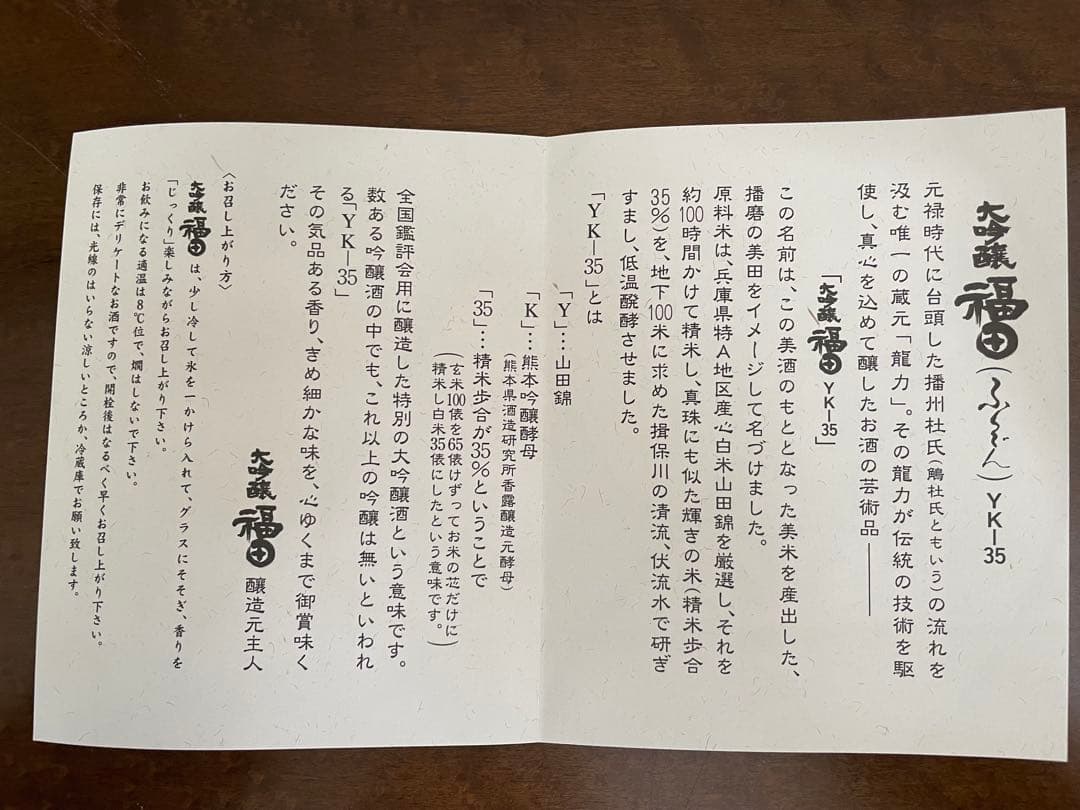 大吟醸 福田（ふくでん）YK―35
元禄時代に台頭した播州杜氏（鵤杜氏ともいう）の流れを
汲む唯一の蔵元「龍力」。その龍力が伝統の技術を駆
使し、真心を込めて醸したお酒の芸術品――
「大吟醸 福田 YK―35」
この名前は、この美酒のもととなった美米を産出した、
播磨の美田をイメージして名づけました。
原料米は、兵庫県特A地区産心白米山田錦を厳選し、それを
約100時間かけて精米し、真珠にも似た輝きの米（精米歩合
35%）を、地下100米に求めた揖保川の清流、伏流水で研ぎ
すまし、低温醗酵させました。
「YK―35」とは
「Y」‥‥山田錦
「K」‥‥熊本吟醸酵母
（熊本県酒造研究所香露醸造元酵母）
「35」‥‥精米歩合が35%ということで
（玄米100俵を65俵けずってお米の芯だけに
精米し白米35俵にしたという意味です。）
全国鑑評会用に醸造した特別の大吟醸酒という意味です。
数ある吟醸酒の中でも、これ以上の吟醸は無いといわれ
る「YK―35」
その気品ある香り、きめ細かな味を、心ゆくまで御賞味く
ださい。
大吟醸 福田 醸造元主人
〈お召し上がり方〉
大吟醸 福田 は、少し冷して氷を一かけら入れて、グラスにそそぎ、香りを
「じっくり」楽しみながらお召し上がり下さい。
お飲みになる適温は8℃位で、燗はしないで下さい。
非常にデリケートなお酒ですので、開栓後はなるべく早くお召し上がり下さい。
保存には、光線のはいらない涼しいところか、冷蔵庫でお願い致します。